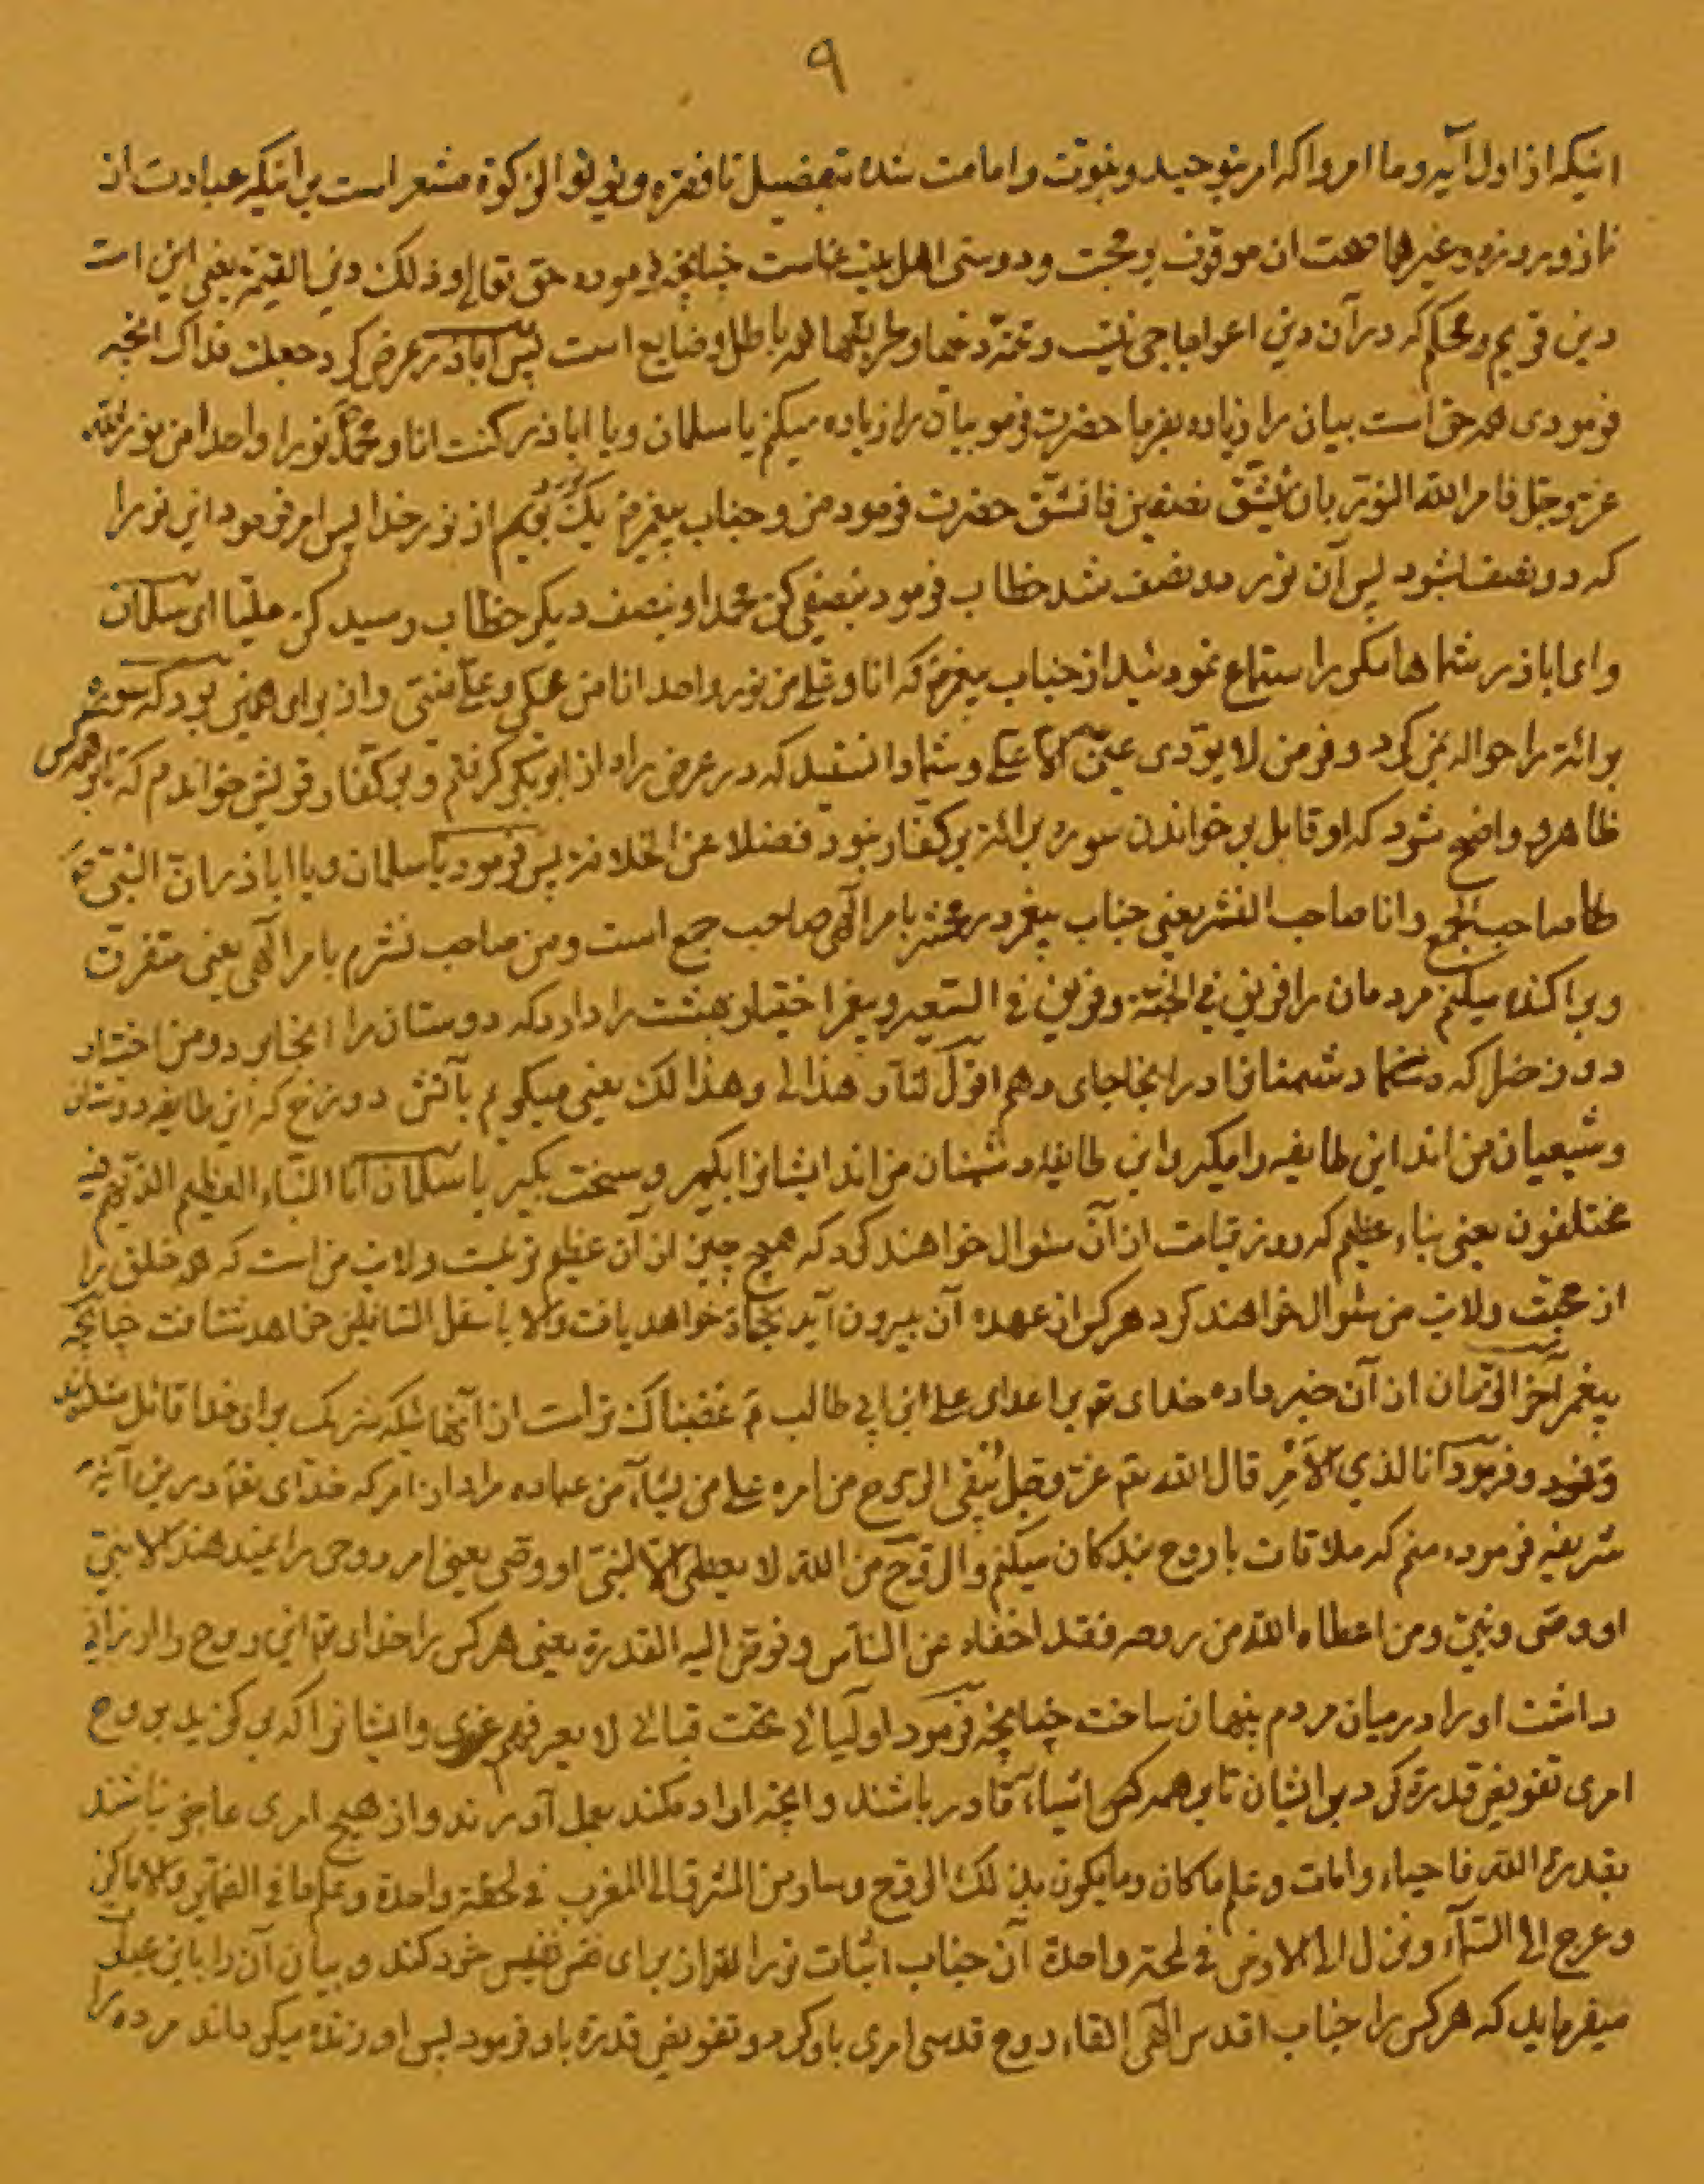 ٩
اینکه از اول آیه وما امروا که امر بتوحید و نبوت و امامت شده بتفضیل تا فقره ویوتوا الزکوة مشعر است بر اینکه عبادت از
نماز و روزه و غیرها صحت ان موقوف بر محبت و دوستی اهل بیت ماست چنانچه فرموده حق تعالی وذلک دین القیمة یعنی این است
دین قویم و محکم که در آن دین اعوجاجی نیست و تتمه دینها و طریقها همه باطل و ضایع است پس اباذر عرض کرد جعلت فداک انچه
فرمودی همه حق است بیان را زیاده بفرما حضرت فرمود بیان را زیاده میکنم یا سلمان ویا اباذر کنت انا ومحمد نورا واحدا من نور الله
عز وجل فامر الله النور بان ینشق نصفین فانشق حضرت فرمود من و جناب پیغمبر یک نور بودیم از نور خدا پس امر فرمود این نور را
که دو نصف شود پس آن نور دو نصف شد خطاب فرمود بنصفی کن محمدا و بنصف دیگر خطاب رسید کن علیا ای سلمان
وای اباذر شماها مکرر استماع نموده‌اید از جناب پیغمبر که انا وعلی من نور واحد انا من علی وعلی منی و از برای همین بود که سوره
برائة را حواله بمن کرد و فرمود لا یؤدی عنی الا علی و شما دانستید که در عرض راه از ابوبکر گرفتم و بر کفار قریش خواندم که تا بر همه کس
ظاهر و واضح شود که او قابل بر خواندن سوره برائة بر کفار نبود فضلا عن الخلافة پس فرمود یا سلمان ویا اباذر ان النبی
صاحب الجمع وانا صاحب النشر یعنی جناب پیغمبر در محشر بامر الهی صاحب جمع است و من صاحب نشرم بامر الهی یعنی متفرق
و پراکنده میکنم مردمان را فریق فی الجنة وفریق فی السعیر و پیغمبر اختیار بهشت را دارد که دوستان را انجا برد و من اختیار
دوزخ را که دشمنان را در انجا جای دهم اقول للنار هذا لی وهذا لک یعنی میگویم بآتش دوزخ که این طایفه دوستان
و شیعیان من اند این طایفه را مگیر و این طایفه دشمنان من اند ایشانرا بگیر و سخت بگیر یا سلمان انا النباء العظیم الذی هم فیه
مختلفون یعنی نباء عظیم که روز قیامت از آن سئوال خواهند کرد که هیچ چیز از آن عظیم‌تر نیست ولایت من است که همه خلق را
از محبت و ولایت من سئوال خواهند کرد هر کس از عهده آن بیرون آید نجات خواهد یافت والا باسفل السافلین خواهد شتافت چنانچه
پیغمبر آخر الزمان از آن خبر داده خدای تم بر اعدای علی ابن ابی طالب غضبناک‌تر است از آنهائیکه شریک برای خدا قائل شده‌اند
وفرمود انا لذی الامر قال الله تم عز وجل یلقی الروح من امره علی من یشاء من عباده مراد از امر که خدای تعالی در این آیه
شریفه فرموده منم که ملاقات با روح بندگان میکنم والروح من الله لا یعطی الا لنبی او وصی یعنی امر روحی را نمیدهند الا بنبی
او وصی و نبی ومن اعطاه الله من روحه فقد اخفاه عن الناس وفوض الیه القدرة یعنی هر کس را خدای تم این روح را ارزانی
داشت او را در میان مردم پنهان ساخت چنانچه فرمود اولیائی تحت قبائی لا یعرفهم غیری و ایشانرا که برگزید بروح
امری تفویض قدرة کرد بر ایشان تا بر همه کس اشیاء قادر باشند و انچه اراده کنند بعمل آورند و از هیچ امری عاجز نباشند
بقدرة الله فاحیاء وامات وعلم ما کان وما یکون بذلک الروح وسار من المشرق الی المغرب فی لحظة واحدة وعلم ما فی الضمایر والاماکن
وعرج الی السماء ونزل الی الارض فی لمحة واحدة آن جناب اثبات نورا لقرار برای نفس نفیس خود کند و بیان آن را باین عبارت
میفرماید که هر کس را جناب اقدس الهی القاء روح قدسی امری باو کرد و تفویض قدرة باو فرمود پس او زنده میگرداند مرده را